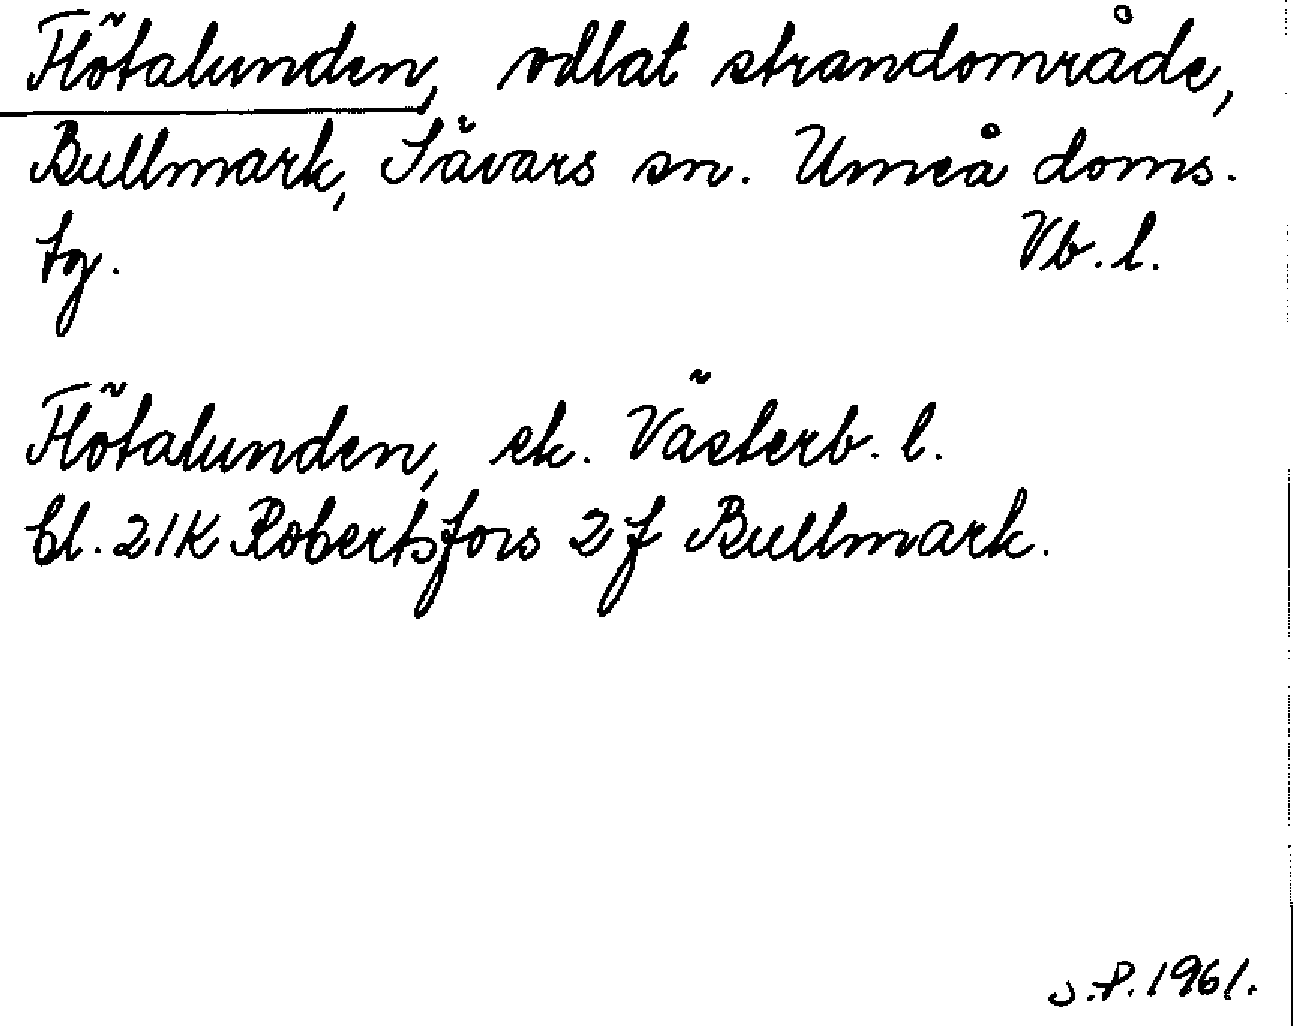 Flötalunden, odlat strandområde,
Bullmark, Sävars sn. Umeå doms.
tg. Vb. l.
Flötalunden, ek. Västerb. l.
bl. 21K Robertsfors 2f Bullmark.
S.P. 1961.